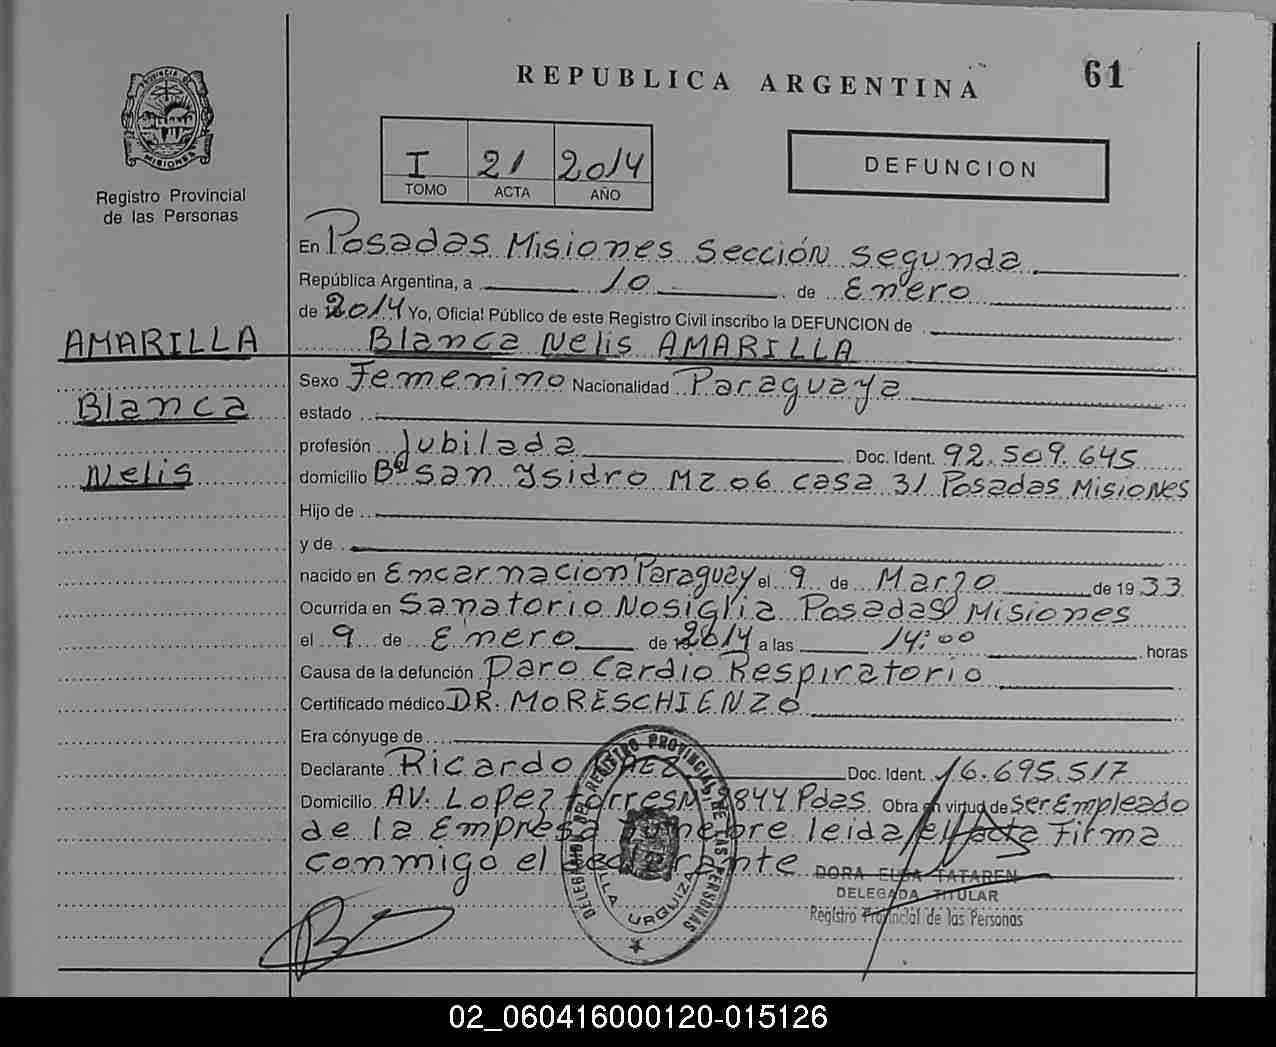 REPUBLICA ARGENTINA
61
MISIONES
Registro Provincial
de las Personas
I 21 2014
TOMO ACTA AÑO
DEFUNCION
En Posadas Misiones Sección segunda
República Argentina, a 10 de Enero
de 2014 Yo, Oficial Público de este Registro Civil inscribo la DEFUNCION de
AMARILLA
Blanca Nelis AMARILLA
Sexo Femenino Nacionalidad Paraguaya
Blanca
estado
profesión Jubilada Doc. Ident. 92.509.645
Nelis
domicilio Bº San Ysidro Mz 06 casa 31 Posadas Misiones
Hijo de
y de
nacido en Encarnación Paraguay el 9 de Marzo de 1933
Ocurrida en Sanatorio Nosiglia Posadas Misiones
el 9 de Enero de 2014 a las 14:00 horas
Causa de la defunción Paro Cardio Respiratorio
Certificado médico DR. MORESCHI ENZO
Era cónyuge de
Declarante Ricardo Doc. Ident. 16.695.517
Domicilio AV. Lopez Torres Nº 844 Pdas. Obra en virtud de ser Empleado
de la Empresa Funebre leida el acta firma
conmigo el declarante
DELEGACION DEL REGISTRO PROVINCIAL DE LAS PERSONAS
VILLA URQUIZA
DORA ELBA TATAREN
DELEGADA TITULAR
Registro Provincial de las Personas
02_060416000120-015126